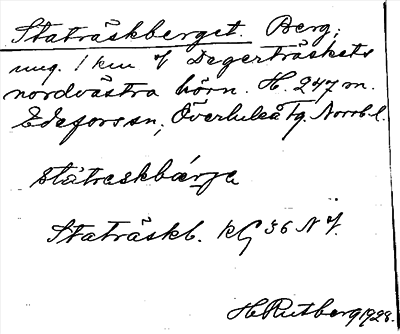 Staträskberget. Berg;
ung. 1 km V Degerträskets
nordvästra hörn. H. 247 m.
Edefors sn, Överluleå Tg. Norrb. l.
ståtraskbärje
Staträskb. KG 36 NV.
H Rutberg 1928.